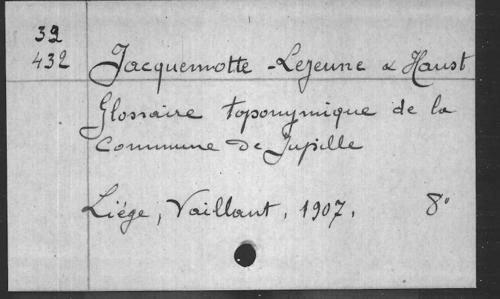 39
432
Jacquemotte - Lejeune & Haust
Glossaire toponymique de la
Commune de Jupille
Liége, Vaillant, 1907, 8°